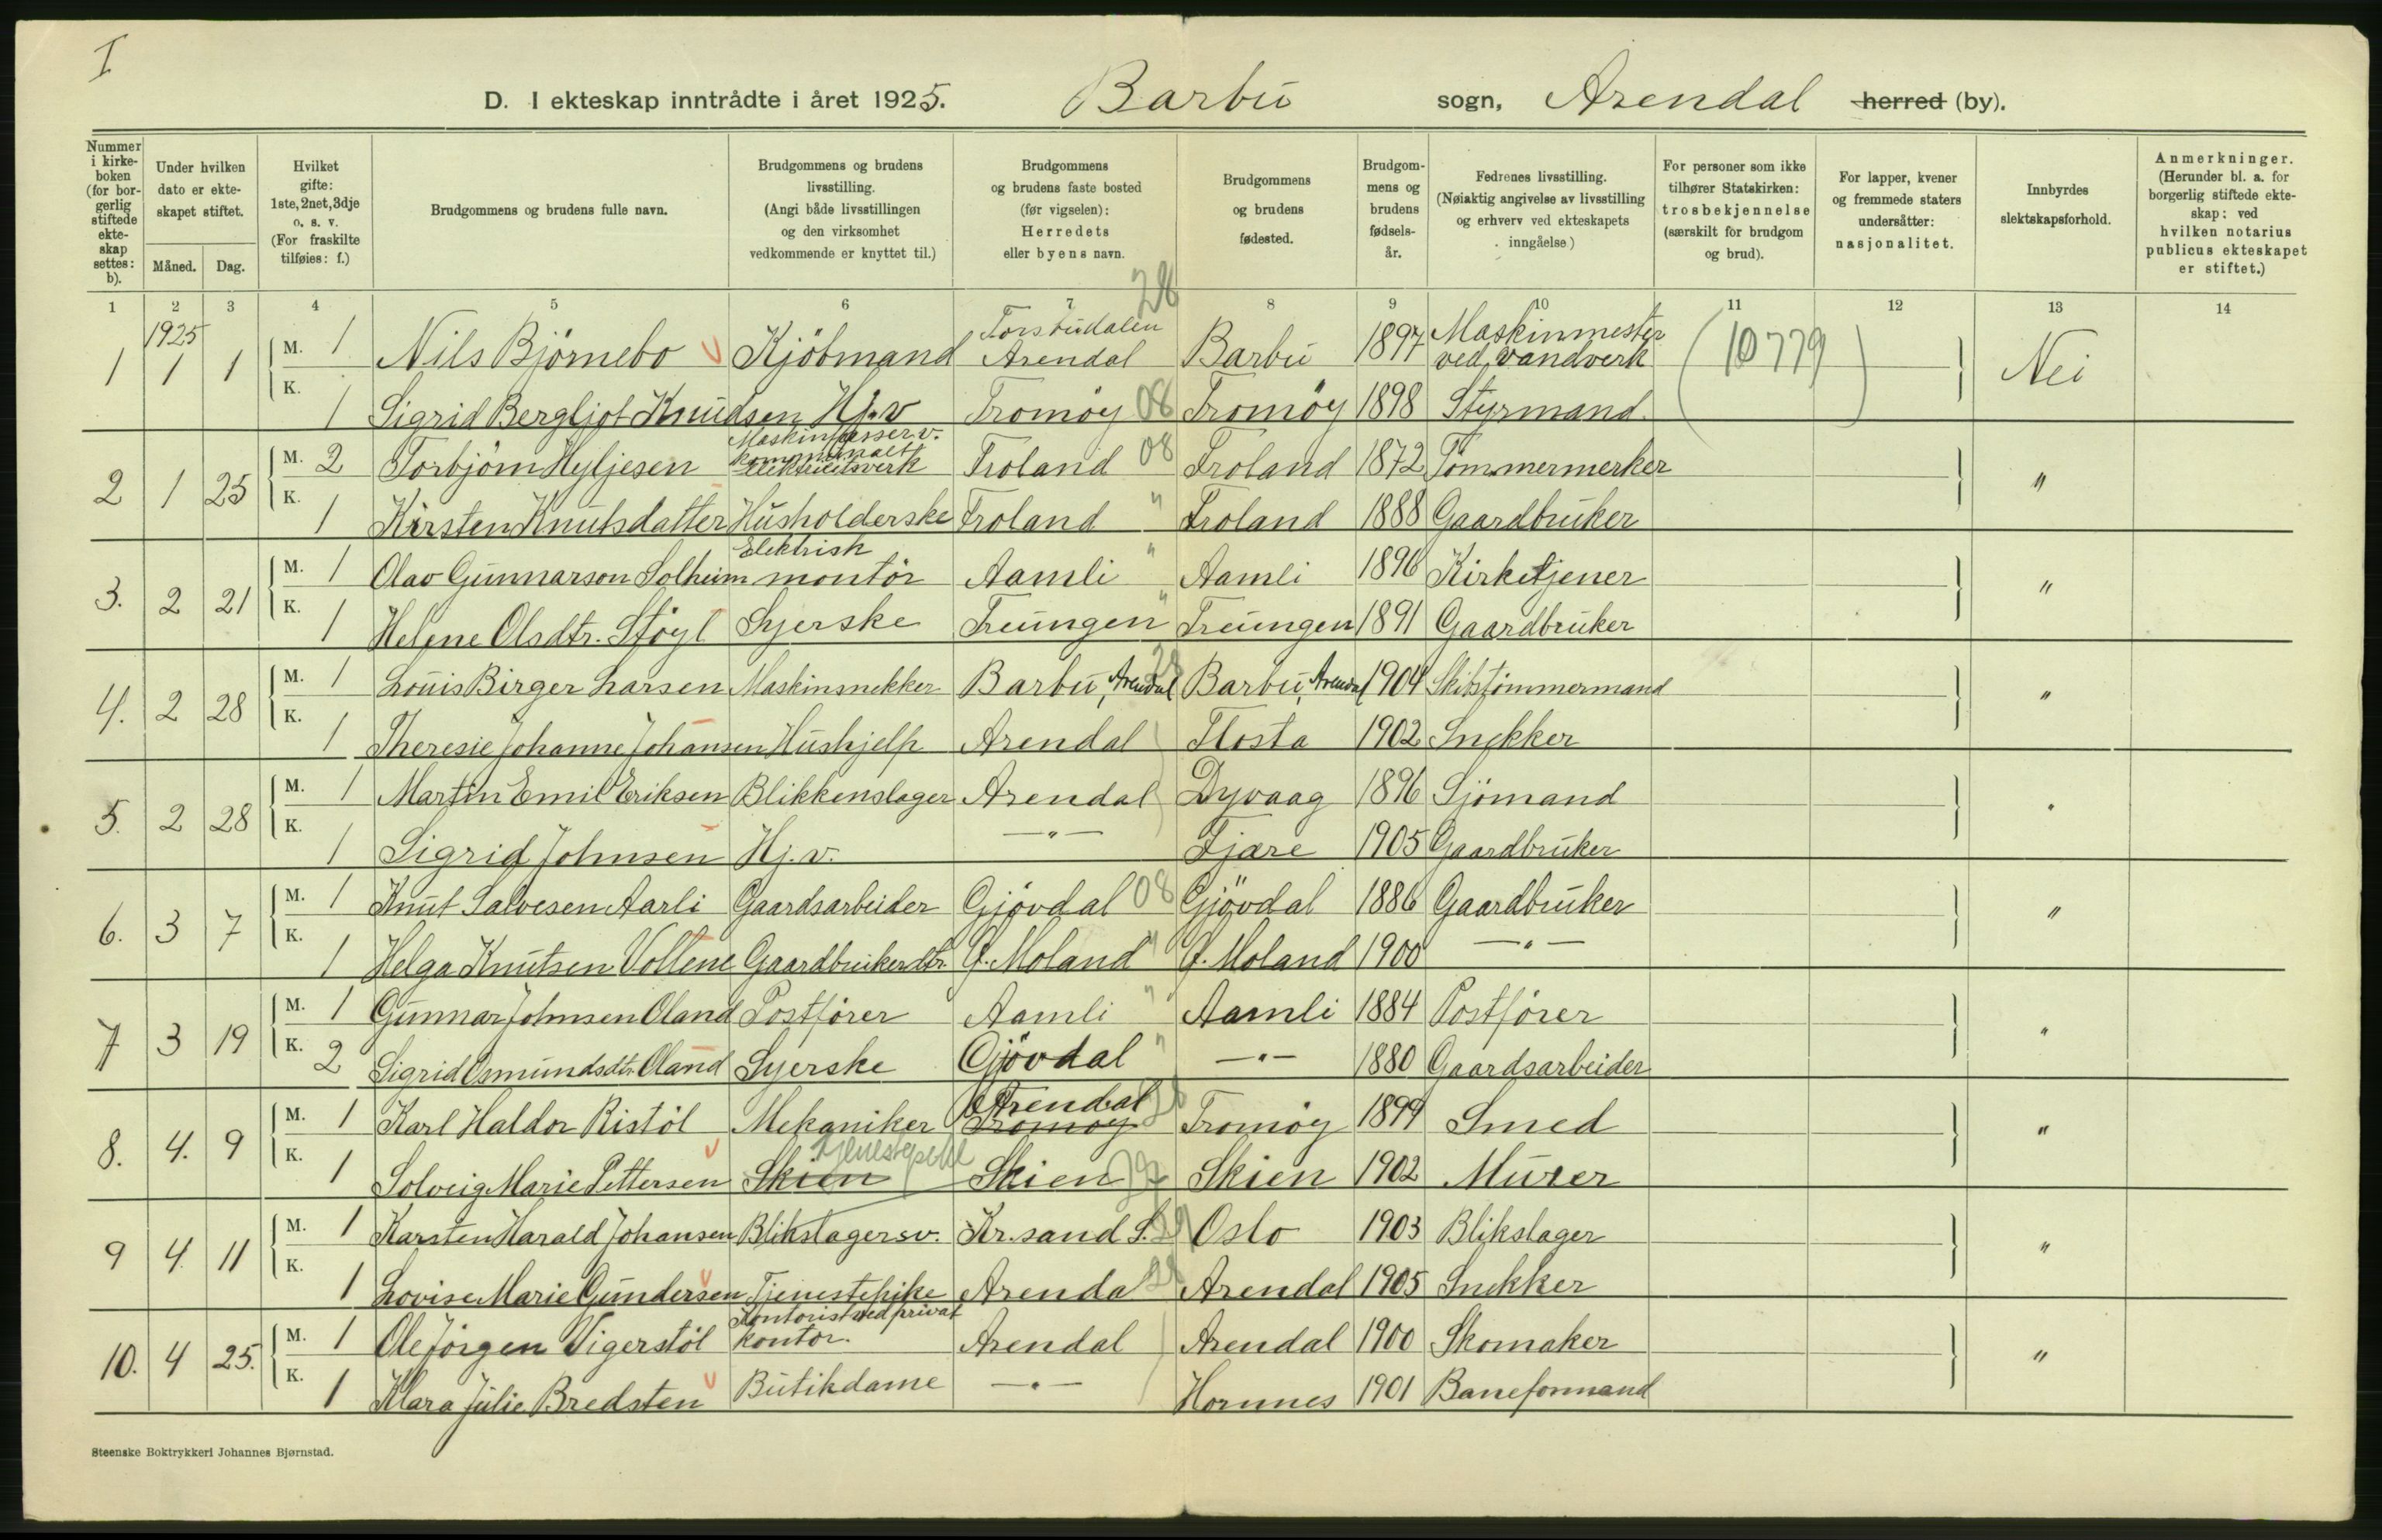 I
D. I ekteskap inntrådte i året 1925. Barbu sogn, Arendal herred (by).
Nummer i kirkeboken (for borgerlig stiftede ekteskap settes: b).
Under hvilken dato er ekteskapet stiftet.
Måned. Dag.
Hvilket gifte: 1ste, 2net, 3dje o. s. v. (For fraskilte tilføies: f.)
Brudgommens og brudens fulle navn.
Brudgommens og brudens livsstilling. (Angi både livsstillingen og den virksomhet vedkommende er knyttet til.)
Brudgommens og brudens faste bosted (før vigselen): Herredets eller byens navn.
Brudgommens og brudens fødested.
Brudgommens og brudens fødselsår.
Fedrenes livsstilling. (Nøiaktig angivelse av livsstilling og erhverv ved ekteskapets inngåelse)
For personer som ikke tilhører Statskirken: trosbekjennelse (særskilt for brudgom og brud).
For lapper, kvener og fremmede staters undersåtter: nasjonalitet.
Innbyrdes slektskapsforhold.
Anmerkninger. (Herunder bl. a. for borgerlig stiftede ekteskap: ved hvilken notarius publicus ekteskapet er stiftet.)
1 2 3 4 5 6 7 8 9 10 11 12 13 14
1925
28
1 1 1 M. 1 Nils Bjørnebo Kjöbmand Torsbudalen Arendal Barbu 1897 Maskinmester ved vandverk (10779) Nei
K. 1 Sigrid Bergljot Knudsen Hj.v Tromöy 08 Tromöy 1898 Styrmand.
2 1 25 M. 2 Torbjörn Hyljesen Maskinpasser v. kommunalt Elektricitsverk Froland 08 Froland 1872 Tömmermerker "
K. 1 Kirsten Knutsdatter Husholderske Froland " Froland 1888 Gaardbruker
3. 2 21 M. 1 Olav Gunnarson Solheim Elektrisk montör Aamli " Aamli 1896 Kirketjener "
K. 1 Helene Olsdtr. Stöyl Syerske Treungen " Treungen 1891 Gaardbruker
4. 2 28 M. 1 Louis Birger Larsen Maskinsnekker Barbu, Arendal 28 Barbu, Arendal 1904 Skibstömmermand "
K. 1 Theresie Johanne Johansen Hushjelp Arendal Flosta 1902 Snekker
5. 2 28 M. 1 Martin Emil Eriksen Blikkenslager Arendal Dyvaag 1896 Sjömand "
K. 1 Sigrid Johnsen Hj.v. —"— Fjære 1905 Gaardbruker
6. 3 7 M. 1 Knut Salvesen Aarli Gaardsarbeider Gjövdal 08 Gjövdal 1886 Gaardbruker "
K. 1 Helga Knutsen Voltene Gaardbrukerdtr. Ö. Moland " Ö. Moland 1900 —"—
7 3 19 M. 1 Gunnar Johnsen Oland Postförer Aamli " Aamli 1884 Postförer "
K. 2 Sigrid Osmundsdtr. Oland Syerske Gjövdal " —"— 1880 Gaardsarbeider
8. 4. 9 M. 1 Karl Haldor Ristöl Mekaniker Arendal Tromöy 28 Tromöy 1899 Smed "
K. 1 Solveig Marie Pettersen Skien Tjenestepike Skien Skien 1902 Murer
9 4 11 M. 1 Karsten Harald Johansen Blikslagersv. Kr.sand S. Oslo 1903 Blikslager "
K. 1 Lovise Marie Gundersen Tjenestepike Arenda 28 Arendal 1905 Snekker
10. 4 25. M. 1 Ole Jörgen Vigerstöl Kontorist ved privat kontor. Arendal Arendal 1900 Skomaker "
K. 1 Klara Julie Bredsten Butikdame —"— Hornnes 1901 Baneformand
Steenske Boktrykkeri Johannes Bjørnstad.